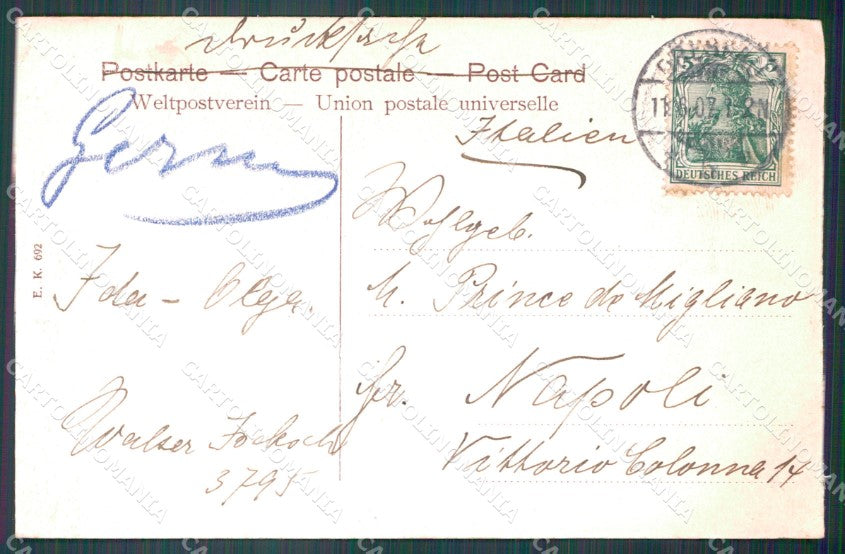 Drucksache
Postkarte — Carte postale — Post Card
Weltpostverein — Union postale universelle
Italien
11.6.07. 1-2N
DEUTSCHES REICH
Wohlgeb.
M. Prince de Migliano
Napoli
Vittorio Colonna 14
E. K. 692
Ida - Olga.
Walser
3795
CARTOLINOMANIA